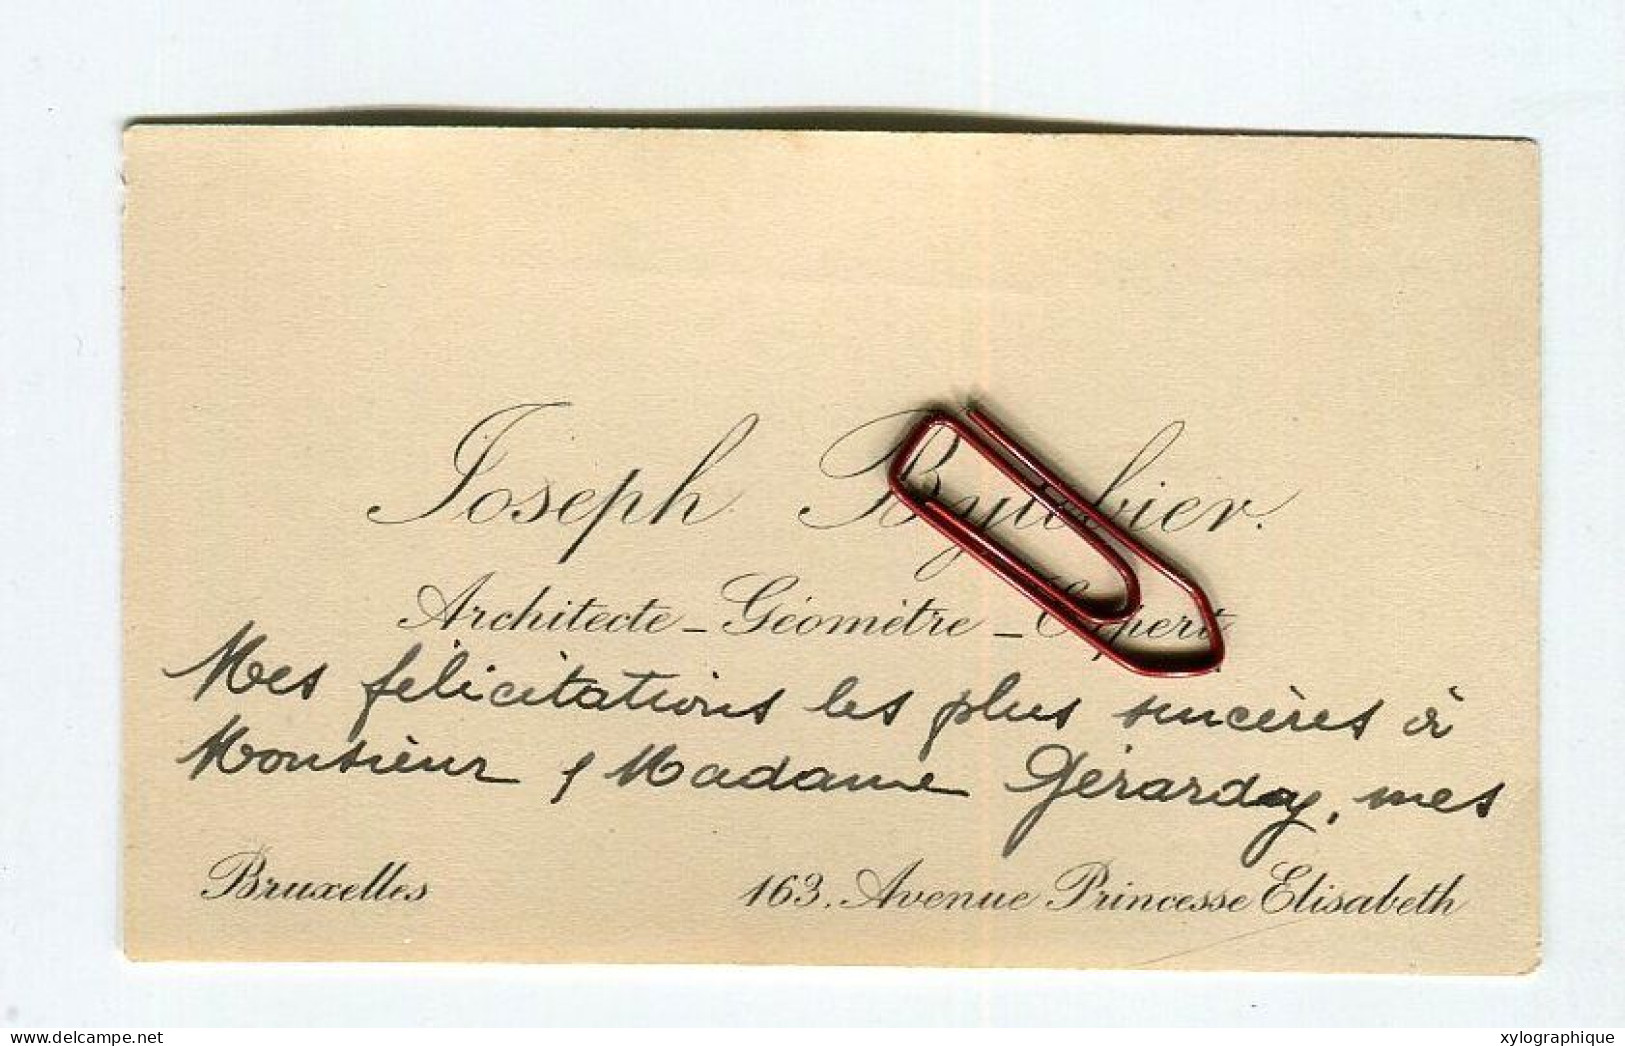 Joseph
Architecte - Géomètre - Expert
Mes félicitations les plus sincères à
Monsieur & Madame Gérarday, mes
Bruxelles 163, Avenue Princesse Elisabeth
www.delcampe.net xylographique